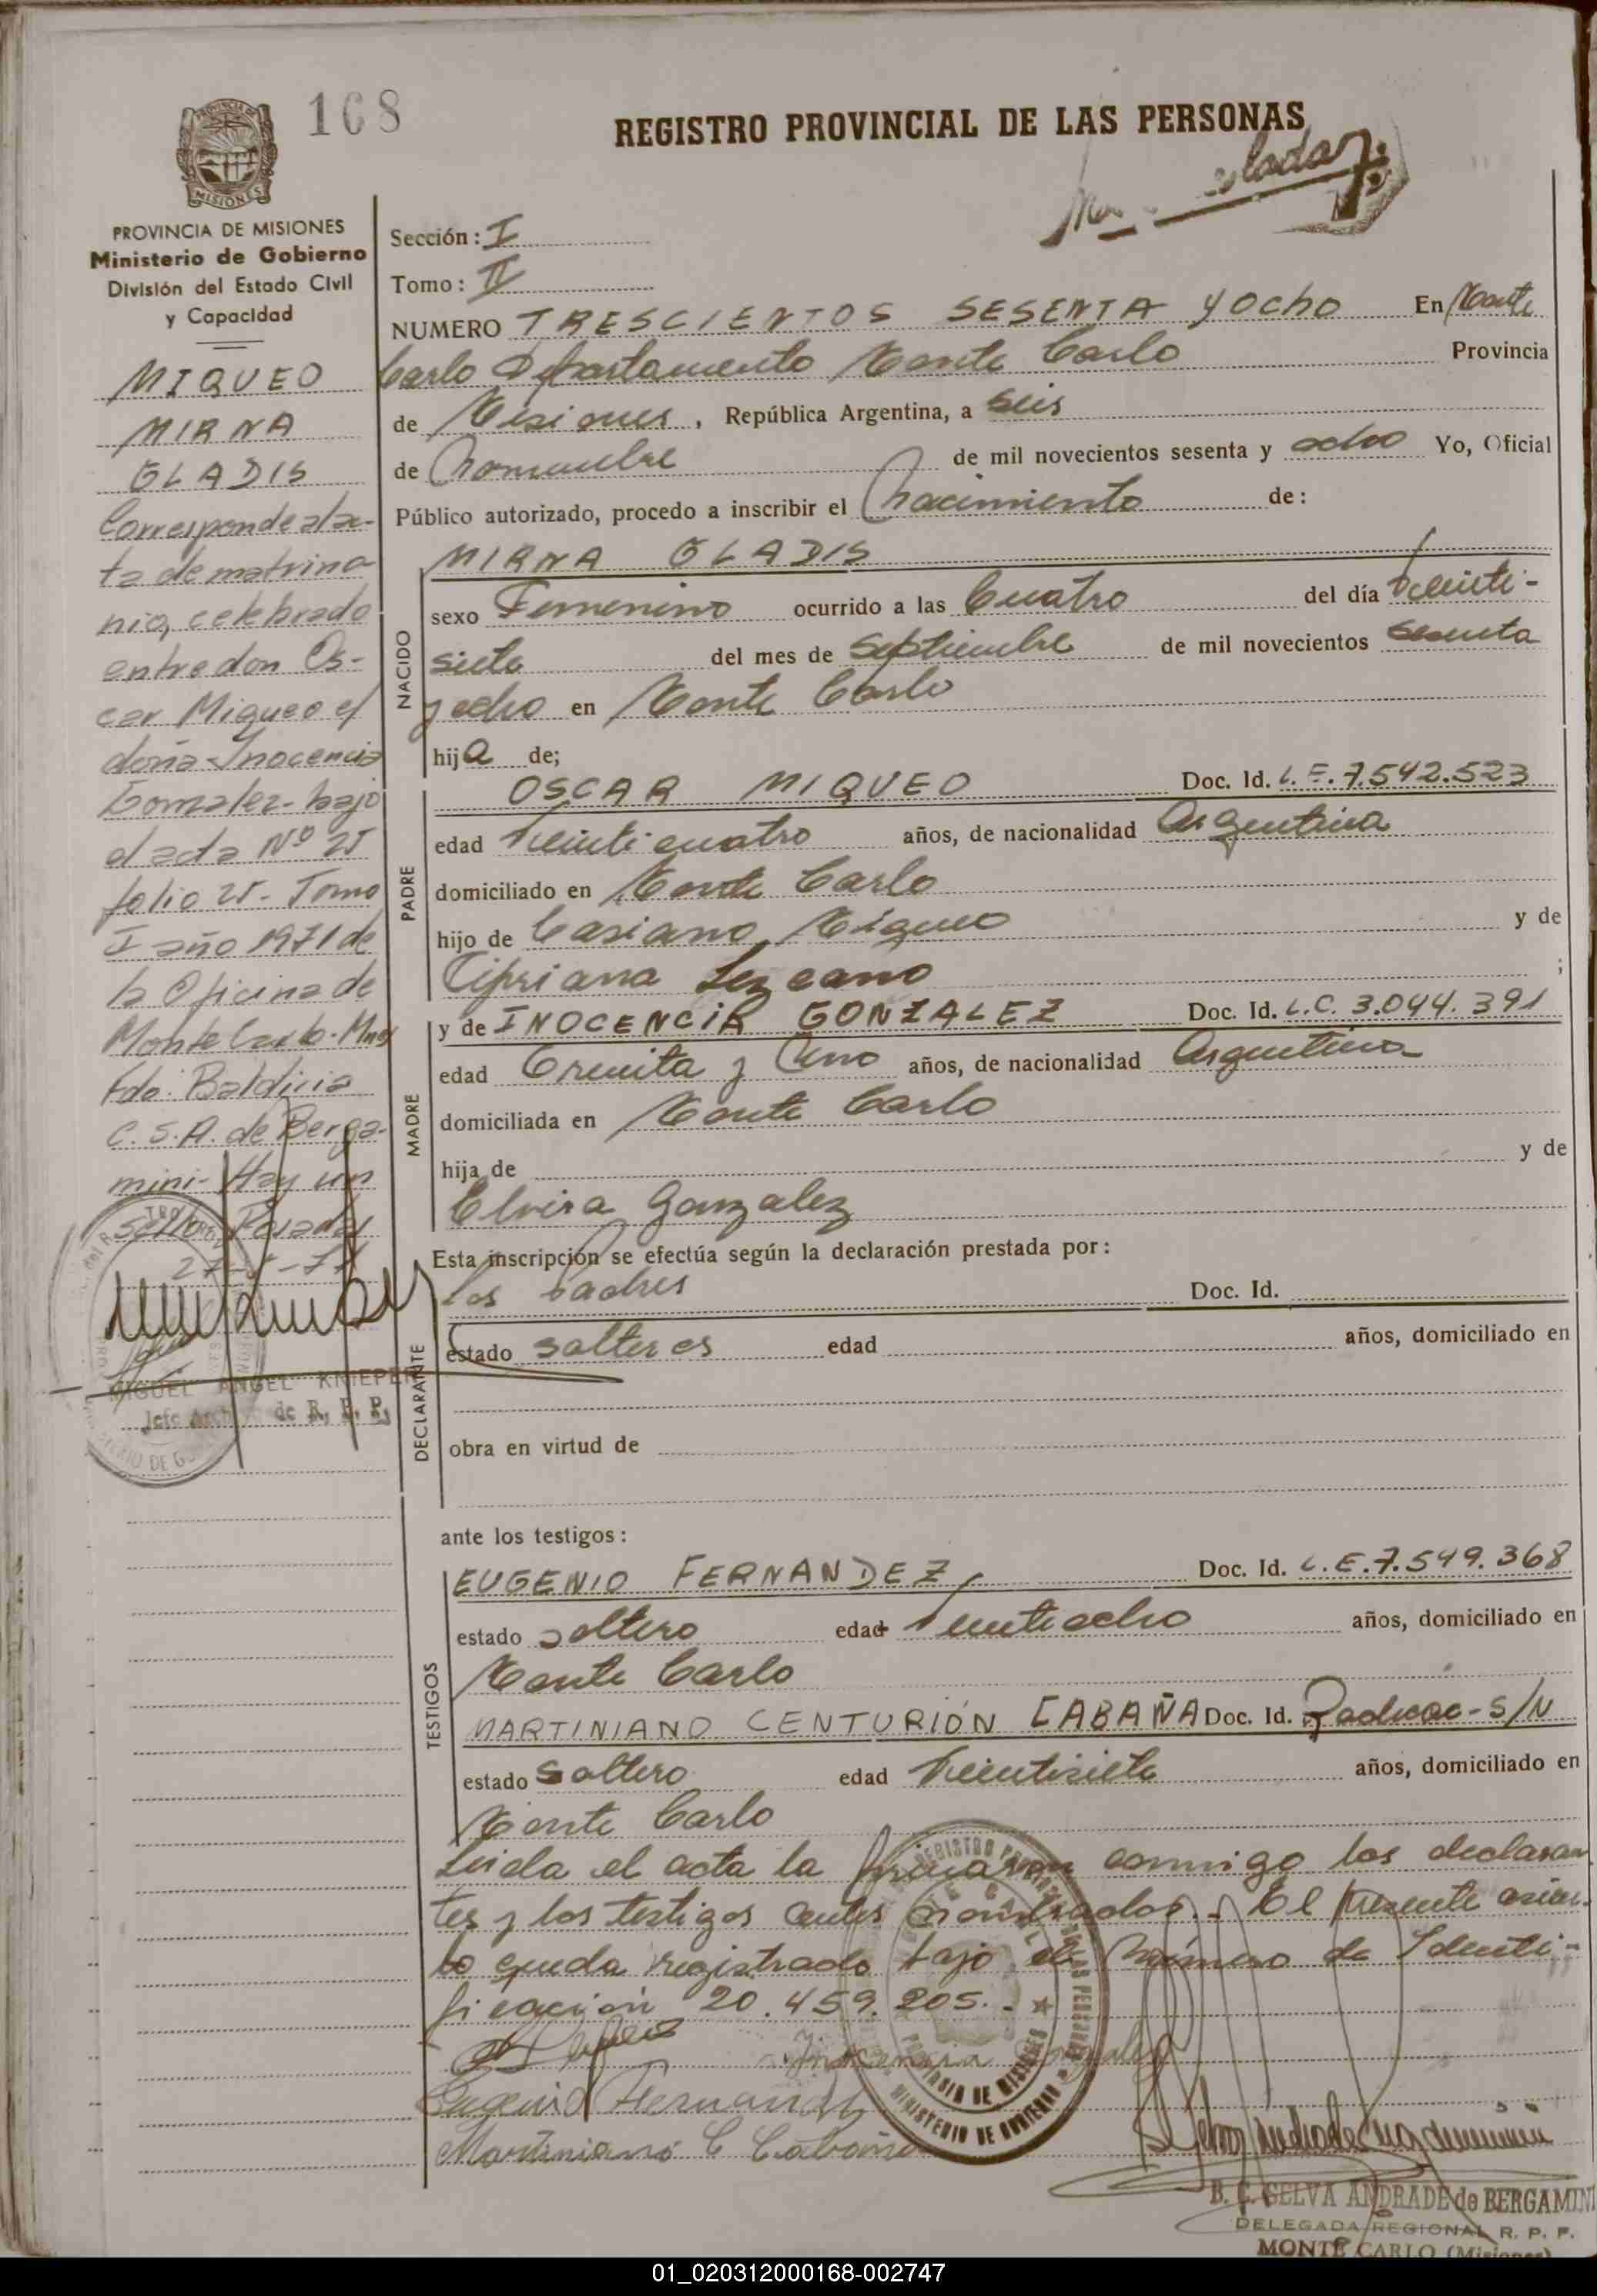 168
REGISTRO PROVINCIAL DE LAS PERSONAS
PROVINCIA DE
MISIONES
PROVINCIA DE MISIONES
Ministerio de Gobierno
División del Estado Civil
y Capacidad
MIQUEO
MIRNA
GLADIS
Corresponde al ac-
ta de matrimo
nio, celebrado
entre don Os-
car Miqueo y
doña Inocencia
Gonzalez- bajo
el acta Nº 25
folio 25 - Tomo
I año 1971 de
la Oficina de
Monte Carlo - Mnes
Fdo: Baldicia
C. S. A. de Berga-
mini - Hay un
sello Posadas
MIGUEL ANGEL KNIEPER
Jefe Archivo de R. P. P.
Sección: I
Tomo: II
NUMERO TRESCIENTOS SESENTA Y OCHO En Monte
Carlo Departamento Monte Carlo Provincia
de Misiones, República Argentina, a Seis
de Noviembre de mil novecientos sesenta y ocho Yo, Oficial
Público autorizado, procedo a inscribir el Nacimiento de:
NACIDO
MIRNA GLADIS
sexo Femenino ocurrido a las Cuatro del día Veinti-
siete del mes de Septiembre de mil novecientos sesenta
y ocho en Monte Carlo
hija de;
PADRE
OSCAR MIQUEO Doc. Id. L.E. 7.542.523
edad Veinticuatro años, de nacionalidad Argentina
domiciliado en Monte Carlo
hijo de Casiano Miqueo y de
Cipriana Lezcano ;
MADRE
y de INOCENCIA GONZALEZ Doc. Id. L.C. 3.044.391
edad Treinta y Uno años, de nacionalidad Argentina
domiciliada en Monte Carlo
hija de y de
Elvira Gonzalez
DECLARANTE
Esta inscripción se efectúa según la declaración prestada por:
los Padres Doc. Id.
estado solteros edad años, domiciliado en
obra en virtud de
ante los testigos:
TESTIGOS
EUGENIO FERNANDEZ, Doc. Id. L.E. 7.549.368
estado soltero edad Veintiocho años, domiciliado en
Monte Carlo
MARTINIANO CENTURIÓN CABAÑA Doc. Id. S/N
estado soltero edad Veintisiete años, domiciliado en
Monte Carlo
Leida el acta la firmaron conmigo los declaran
tes y los testigos antes nombrados.- El presente asien-
to queda registrado bajo el Número de Identi-
ficación 20.459.205.-
Inocencia Gonzalez
Eugenio Fernandez
Martiniano C Cabaña
REGISTRO PROVINCIAL DE LAS PERSONAS
MONTE CARLO
PROVINCIA DE MISIONES
MINISTERIO DE GOBIERNO
B. C. SELVA ANDRADE de BERGAMINI
DELEGADA REGIONAL R. P. P.
MONTE CARLO (Misiones)
01_020312000168-002747